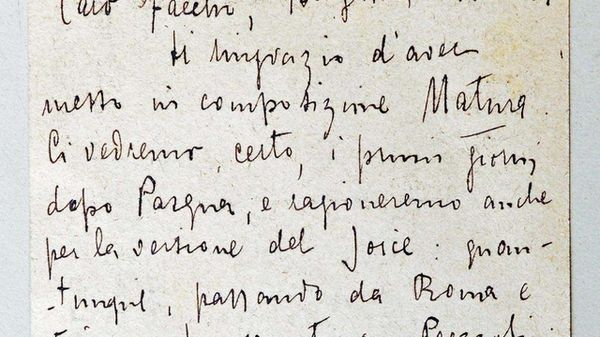 Caro Facchi,
ti ringrazio d'aver
messo in composizione Matura.
Ci vedremo, certo, i primi giorni
dopo Pasqua, e ragioneremo anche
per la versione del Joice: quan-
-tunque, passando da Roma e